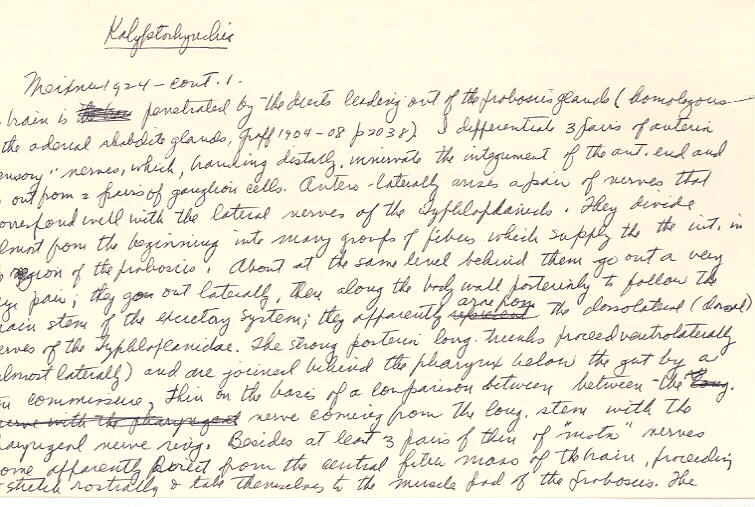 Kalyptorhynchia
Meixner 1924 - cont. 1.
brain is penetrated by the ducts leading out of the proboscis glands (homologous
the adenal rhabdite glands, Graff 1904-08 p2038). I differentiate 3 pairs of anterior
ensory" nerves, which, branching distally, innervate the integument of the ant. end and
out from 2 pairs of ganglion cells. Antero-laterally arises a pair of nerves that
orrespond well with the lateral nerves of the Typhloplanids. They divide
lmost from the beginning into many groups of fibers which supply the the int. in
region of the proboscis. About at the same level behind them go out a very
pair; they go out laterally, then along the body wall posteriorly to follow the
ain stem of the excretory system; they apparently represent the dorsolateral (dorsal)
erves of the Typhloplanidae. The strong posterior long. trunks proceed ventrolaterally
almost laterally) and are joined behind the pharynx below the gut by a
commissure, thin on the basis of a comparison between between the long.
nerve with the pharyngeal nerve coming from the long. stem with the
aryngeal nerve ring. Besides at least 3 pairs of thin of "motor" nerves
ome apparently direct from the central fiber mass of the brain, proceeding
stretch rostrally & take themselves to the muscle pad of the proboscis. The